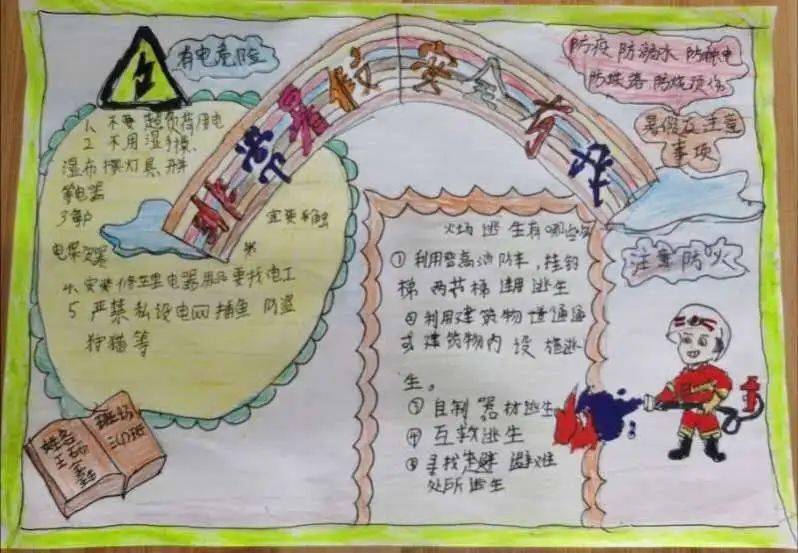 有电危险
非常暑假安全有我
防疫 防溺水 防触电
防坠落 防烧烫伤
暑假应注意
事项
注意防火
1、不要超负荷用电
2 不用湿手摸
湿布擦灯具 开关
等电器
4. 安装修理电器用品要找电工
5 严禁私设电网捕鱼 防盗
狩猫等
火场逃生有哪些
① 利用登高消防车，挂钩
梯 两节梯 逃生
② 利用建筑物通道
或建筑物内设施逃
生。
③ 自制器材逃生
④ 互救逃生
⑤ 寻找避难
处所逃生
姓名
班级
三(1)班